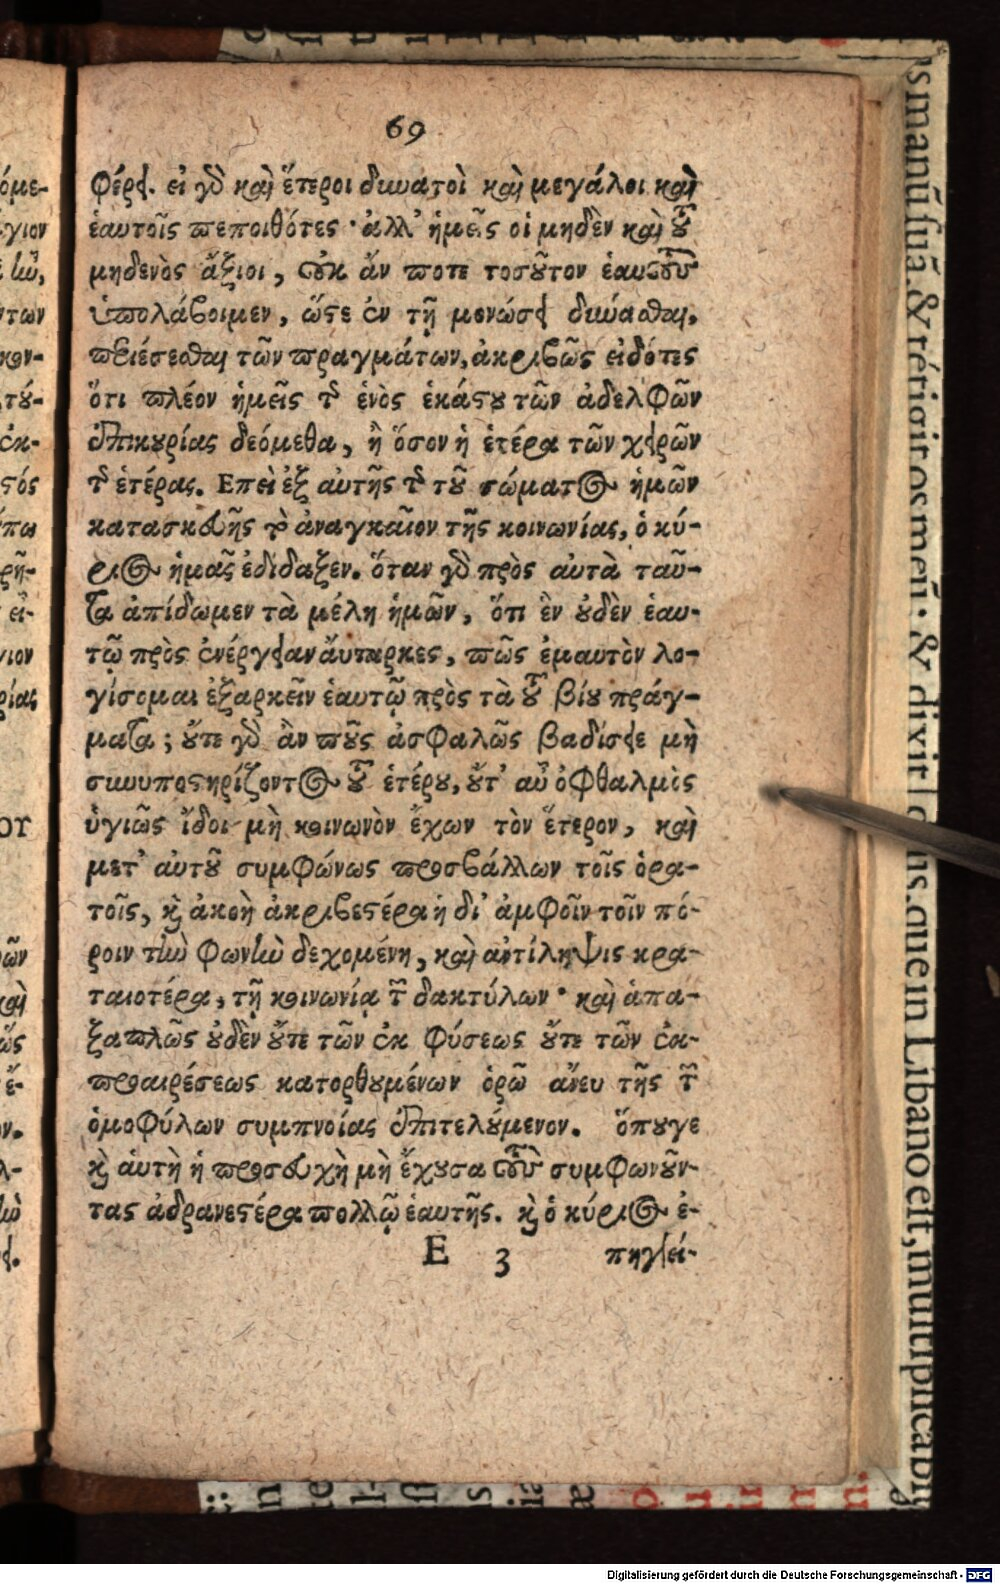 69
φέρει. εἰ γὸ καὶ ἕτεροι δυνατοὶ καὶ μεγάλοι καὶ
ἑαυτοῖς πεποιθότες· ἀλλ' ἡμεῖς οἱ μηδὲν καὶ τοῦ
μηδενὸς ἄξιοι, οὐκ ἄν ποτε τοσοῦτον ἑαυτοὺς
ὑπολάβοιμεν, ὥστε ἐν τῇ μονώσει δύνασθαι,
περιέσεσθαι τῶν πραγμάτων, ἀκριβῶς εἰδότες
ὅτι πλέον ἡμεῖς τῆς ἑνὸς ἑκάστου τῶν ἀδελφῶν
ἐπικουρίας δεόμεθα, ἢ ὅσον ἡ ἑτέρα τῶν χειρῶν
τῆς ἑτέρας. Επεὶ ἐξ αὐτῆς τῆς τοῦ σώματος ἡμῶν
κατασκευῆς τὸ ἀναγκαῖον τῆς κοινωνίας, ὁ κύ-
ριος ἡμᾶς ἐδίδαξεν. ὅταν γὸ πρὸς αὐτὰ ταῦ-
τα ἀπίδωμεν τὰ μέλη ἡμῶν, ὅτι ἓν οὐδὲν ἑαυ-
τῷ πρὸς ἐνέργειαν ἄυταρκες, πῶς ἐμαυτὸν λο-
γίσομαι ἐξαρκεῖν ἑαυτῷ πρὸς τὰ τοῦ βίου πράγ-
ματα; οὔτε γὸ ἂν ποῦς ἀσφαλῶς βαδίσειε μὴ
συνυποστηρίζοντος τοῦ ἑτέρου, οὔτ' αὖ ὀφθαλμὸς
ὑγιῶς ἴδοι μὴ κοινωνὸν ἔχων τὸν ἕτερον, καὶ
μετ' αὐτοῦ συμφώνως προσβάλλων τοῖς ὁρα-
τοῖς, καὶ ἀκοὴ ἀκριβεστέρα ἡ δι' ἀμφοῖν τοῖν πό-
ροιν τὴν φωνὴν δεχομένη, καὶ ἀντίληψις κρα-
ταιοτέρα, τῇ κοινωνίᾳ τῶν δακτύλων· καὶ ἁπα-
ξαπλῶς οὐδὲν οὔτε τῶν ἐκ φύσεως οὔτε τῶν ἐκ-
προαιρέσεως κατορθουμένων ὁρῶ ἄνευ τῆς τῶν
ὁμοφύλων συμπνοίας ἐπιτελούμενον. ὅπουγε
καὶ ἀυτὴ ἡ προσευχὴ μὴ ἔχουσα τοὺς συμφωνοῦν-
τας ἀδρανεστέρα πολλῷ ἑαυτῆς. καὶ ὁ κύριος ἐ-
E 3 πηγγεί-
Digitalisierung gefördert durch die Deutsche Forschungsgemeinschaft - DFG